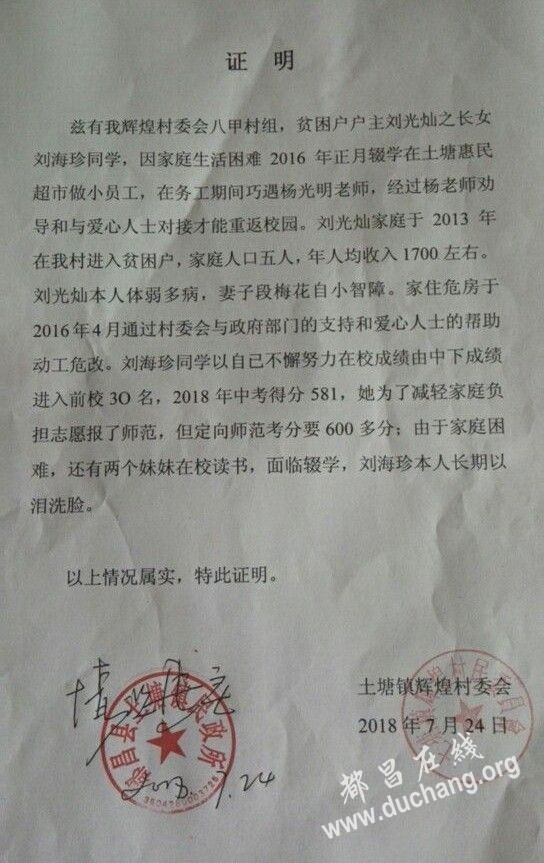 证 明
兹有我辉煌村委会八甲村组，贫困户户主刘光灿之长女
刘海珍同学，因家庭生活困难 2016 年正月辍学在土塘惠民
超市做小员工，在务工期间巧遇杨光明老师，经过杨老师劝
导和与爱心人士对接才能重返校园。刘光灿家庭于 2013 年
在我村进入贫困户，家庭人口五人，年人均收入 1700 左右。
刘光灿本人体弱多病，妻子段梅花自小智障。家住危房于
2016年4月通过村委会与政府部门的支持和爱心人士的帮助
动工危改。刘海珍同学以自已不懈努力在校成绩由中下成绩
进入前校 3O 名，2018 年中考得分 581，她为了减轻家庭负
担志愿报了师范，但定向师范考分要 600 多分；由于家庭困
难，还有两个妹妹在校读书，面临辍学，刘海珍本人长期以
泪洗脸。
以上情况属实，特此证明。
情况属实
2018.7.24
都昌县土塘镇民政所
土塘镇辉煌村委会
2018 年 7 月 24 日
都昌在线
www.duchang.org